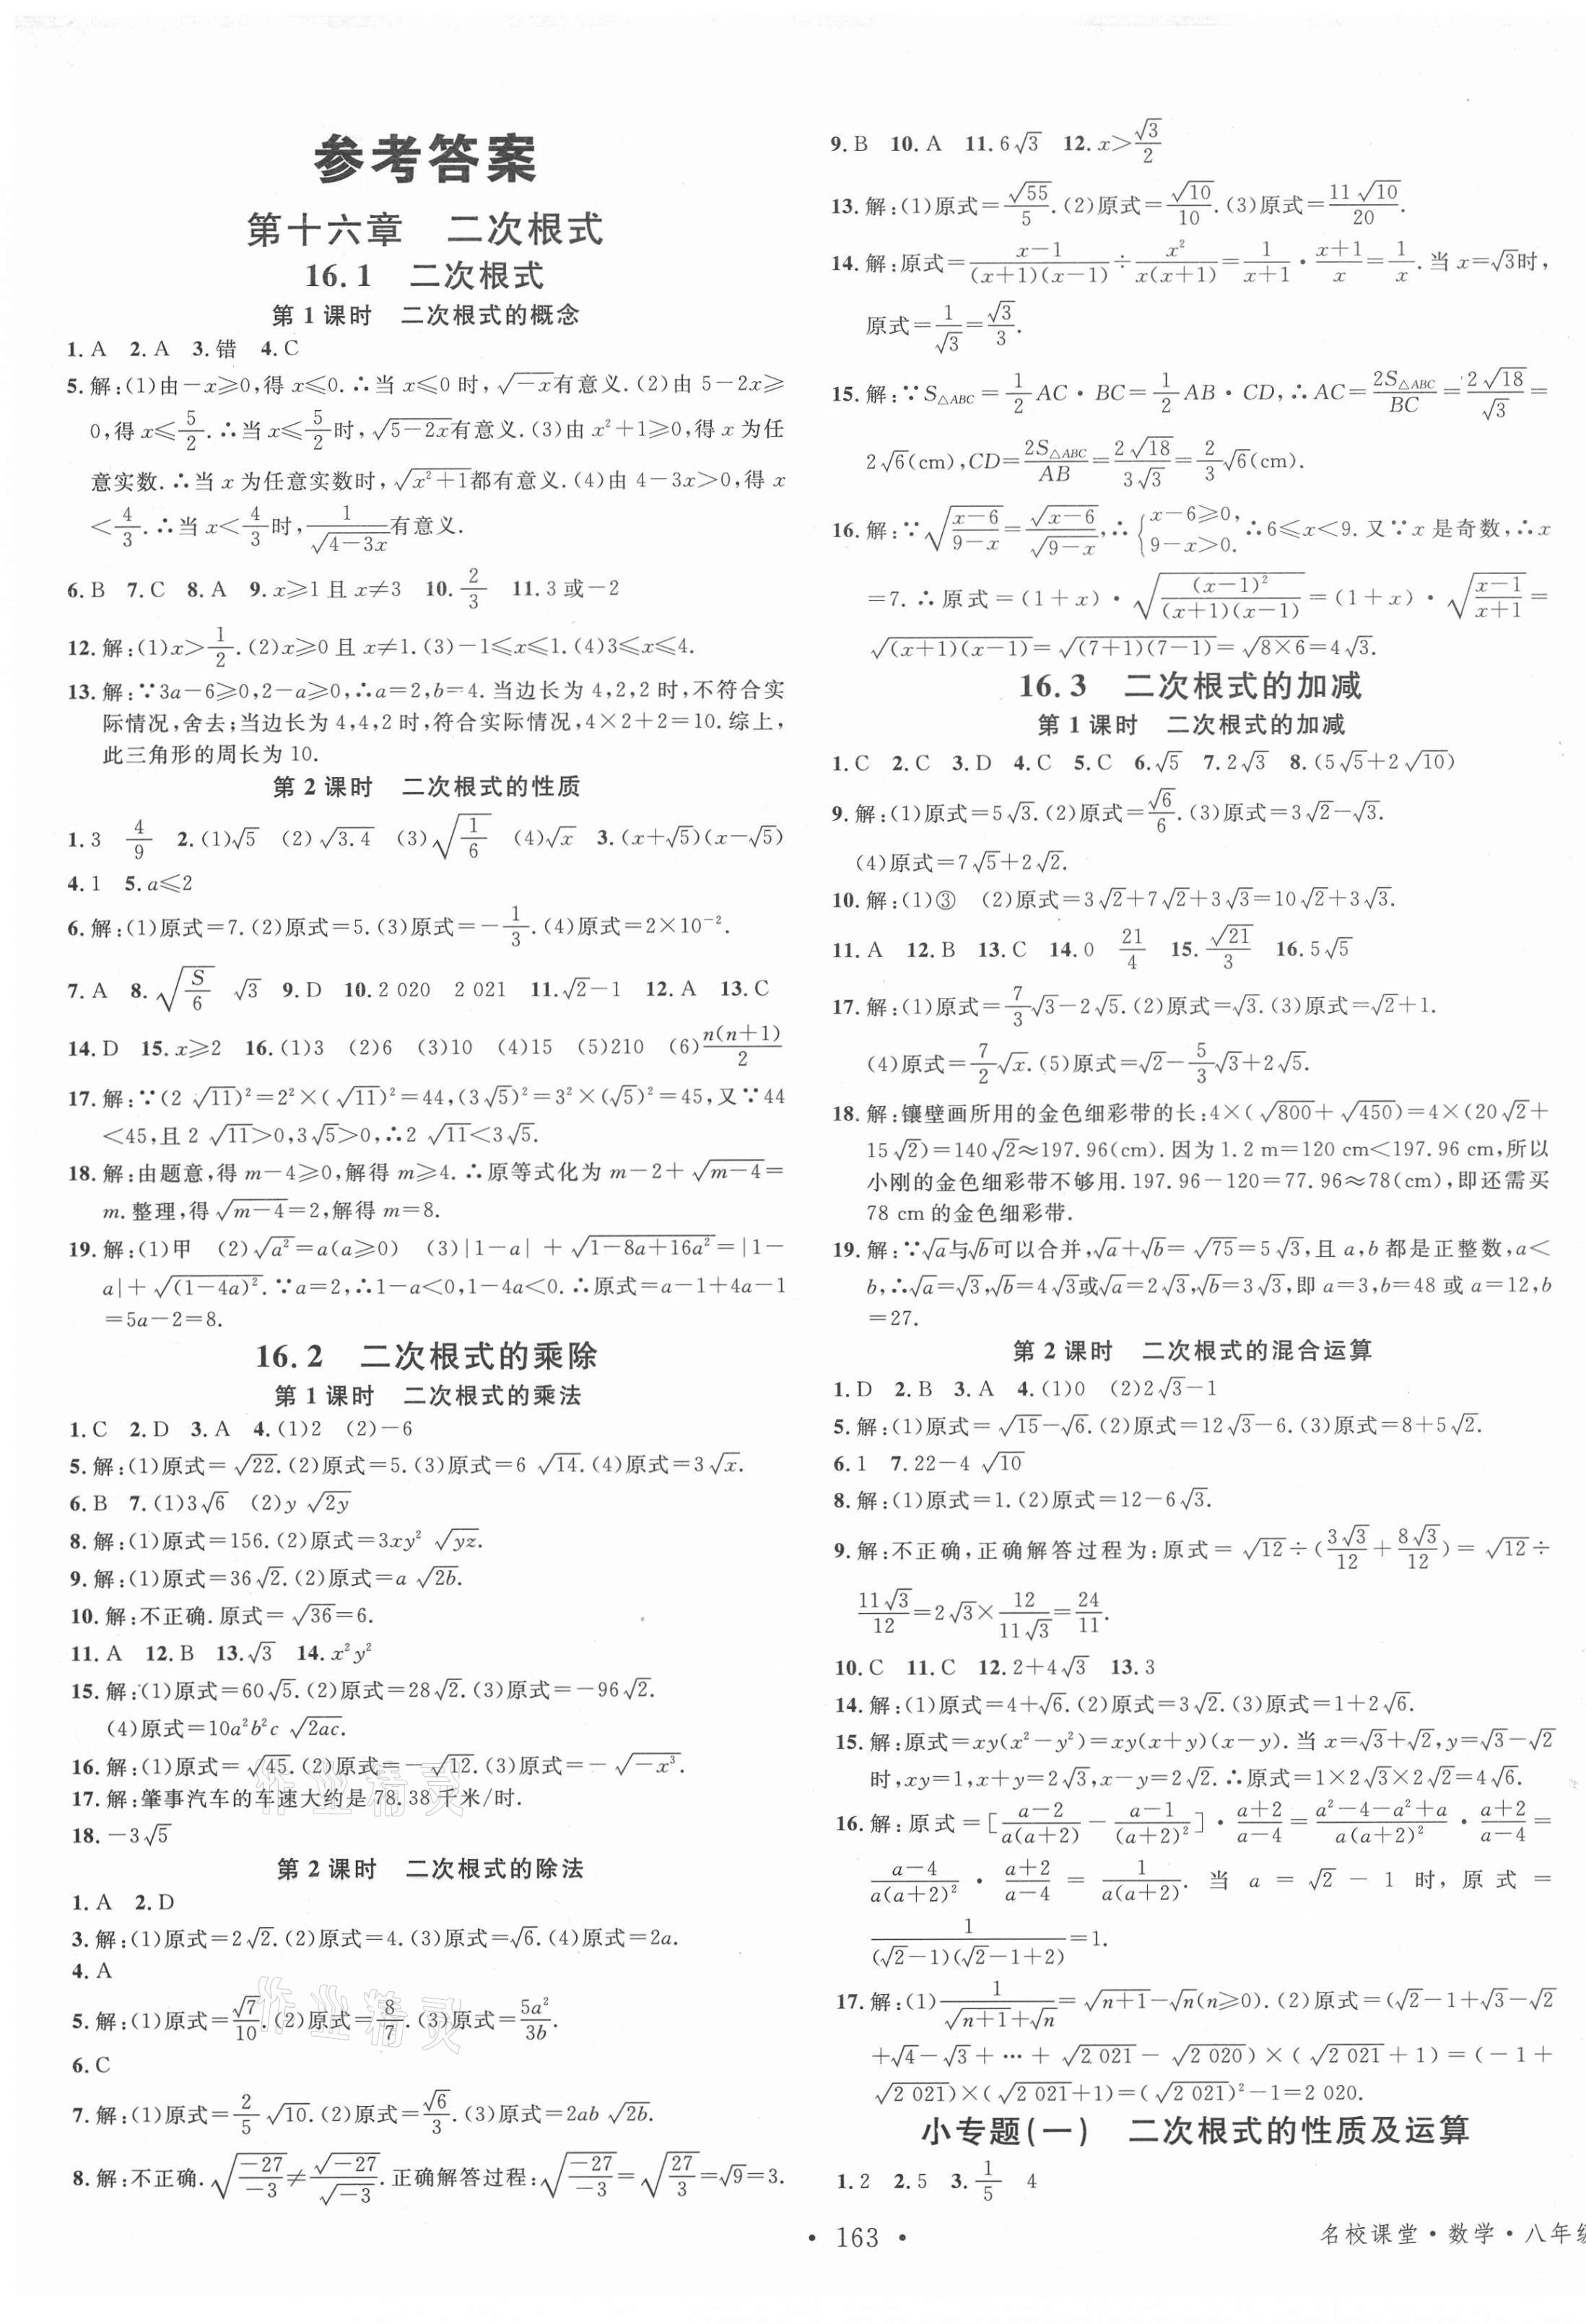 参考答案
第十六章　二次根式
16.1　二次根式
第1课时　二次根式的概念
1.A　2.A　3.错　4.C
5.解:(1)由－x≥0,得x≤0.∴当x≤0时,√(－x)有意义.(2)由5－2x≥
0,得x≤5/2.∴当x≤5/2时,√(5－2x)有意义.(3)由x²＋1≥0,得x为任
意实数.∴当x为任意实数时,√(x²＋1)都有意义.(4)由4－3x>0,得x
<4/3.∴当x<4/3时,1/√(4－3x)有意义.
6.B　7.C　8.A　9.x≥1且x≠3　10.2/3　11.3或－2
12.解:(1)x>1/2.(2)x≥0且x≠1.(3)－1≤x≤1.(4)3≤x≤4.
13.解:∵3a－6≥0,2－a≥0,∴a=2,b=4.当边长为4,2,2时,不符合实
际情况,舍去;当边长为4,4,2时,符合实际情况,4×2＋2=10.综上,
此三角形的周长为10.
第2课时　二次根式的性质
1.3　4/9　2.(1)√5　(2)√3.4　(3)√(1/6)　(4)√x　3.(x＋√5)(x－√5)
4.1　5.a≤2
6.解:(1)原式=7.(2)原式=5.(3)原式=－1/3.(4)原式=2×10⁻².
7.A　8.√(S/6)　√3　9.D　10.2 020　2 021　11.√2－1　12.A　13.C
14.D　15.x≥2　16.(1)3　(2)6　(3)10　(4)15　(5)210　(6)n(n＋1)/2
17.解:∵(2√11)²=2²×(√11)²=44,(3√5)²=3²×(√5)²=45,又∵44
<45,且2√11>0,3√5>0,∴2√11<3√5.
18.解:由题意,得m－4≥0,解得m≥4.∴原等式化为m－2＋√(m－4)=
m.整理,得√(m－4)=2,解得m=8.
19.解:(1)甲　(2)√(a²)=a(a≥0)　(3)|1－a|＋√(1－8a＋16a²)=|1－
a|＋√((1－4a)²).∵a=2,∴1－a<0,1－4a<0.∴原式=a－1＋4a－1
=5a－2=8.
16.2　二次根式的乘除
第1课时　二次根式的乘法
1.C　2.D　3.A　4.(1)2　(2)－6
5.解:(1)原式=√22.(2)原式=5.(3)原式=6√14.(4)原式=3√x.
6.B　7.(1)3√6　(2)y√(2y)
8.解:(1)原式=156.(2)原式=3xy²√(yz).
9.解:(1)原式=36√2.(2)原式=a√(2b).
10.解:不正确.原式=√36=6.
11.A　12.B　13.√3　14.x²y²
15.解:(1)原式=60√5.(2)原式=28√2.(3)原式=－96√2.
(4)原式=10a²b²c√(2ac).
16.解:(1)原式=√45.(2)原式=－√12.(3)原式=－√(－x³).
17.解:肇事汽车的车速大约是78.38千米/时.
18.－3√5
第2课时　二次根式的除法
1.A　2.D
3.解:(1)原式=2√2.(2)原式=4.(3)原式=√6.(4)原式=2a.
4.A
5.解:(1)原式=√7/10.(2)原式=8/7.(3)原式=5a²/3b.
6.C
7.解:(1)原式=2/5√10.(2)原式=√6/3.(3)原式=2ab√(2b).
8.解:不正确.√(－27/－3)≠√(－27)/√(－3).正确解答过程:√(－27/－3)=√(27/3)=√9=3.
9.B　10.A　11.6√3　12.x>√3/2
13.解:(1)原式=√55/5.(2)原式=√10/10.(3)原式=11√10/20.
14.解:原式=(x－1)/((x＋1)(x－1))÷x²/(x(x＋1))=1/(x＋1)·(x＋1)/x=1/x.当x=√3时,
原式=1/√3=√3/3.
15.解:∵S△ABC=1/2AC·BC=1/2AB·CD,∴AC=2S△ABC/BC=2√18/√3=
2√6(cm),CD=2S△ABC/AB=2√18/3√3=2/3√6(cm).
16.解:∵√((x－6)/(9－x))=√(x－6)/√(9－x),∴{x－6≥0,9－x>0.∴6≤x<9.又∵x是奇数,∴x
=7.∴原式=(1＋x)·√((x－1)²/((x＋1)(x－1)))=(1＋x)·√((x－1)/(x＋1))=
√((x＋1)(x－1))=√((7＋1)(7－1))=√(8×6)=4√3.
16.3　二次根式的加减
第1课时　二次根式的加减
1.C　2.C　3.D　4.C　5.C　6.√5　7.2√3　8.(5√5＋2√10)
9.解:(1)原式=5√3.(2)原式=√6/6.(3)原式=3√2－√3.
(4)原式=7√5＋2√2.
10.解:(1)③　(2)原式=3√2＋7√2＋3√3=10√2＋3√3.
11.A　12.B　13.C　14.0　21/4　15.√21/3　16.5√5
17.解:(1)原式=7/3√3－2√5.(2)原式=√3.(3)原式=√2＋1.
(4)原式=7/2√x.(5)原式=√2－5/3√3＋2√5.
18.解:镶壁画所用的金色细彩带的长:4×(√800＋√450)=4×(20√2＋
15√2)=140√2≈197.96(cm).因为1.2 m=120 cm<197.96 cm,所以
小刚的金色细彩带不够用.197.96－120=77.96≈78(cm),即还需买
78 cm的金色细彩带.
19.解:∵√a与√b可以合并,√a＋√b=√75=5√3,且a,b都是正整数,a<
b,∴√a=√3,√b=4√3或√a=2√3,√b=3√3,即a=3,b=48或a=12,b
=27.
第2课时　二次根式的混合运算
1.D　2.B　3.A　4.(1)0　(2)2√3－1
5.解:(1)原式=√15－√6.(2)原式=12√3－6.(3)原式=8＋5√2.
6.1　7.22－4√10
8.解:(1)原式=1.(2)原式=12－6√3.
9.解:不正确,正确解答过程为:原式=√12÷(3√3/12＋8√3/12)=√12÷
11√3/12=2√3×12/11√3=24/11.
10.C　11.C　12.2＋4√3　13.3
14.解:(1)原式=4＋√6.(2)原式=3√2.(3)原式=1＋2√6.
15.解:原式=xy(x²－y²)=xy(x＋y)(x－y).当x=√3＋√2,y=√3－√2
时,xy=1,x＋y=2√3,x－y=2√2.∴原式=1×2√3×2√2=4√6.
16.解:原式=[(a－2)/(a(a＋2))－(a－1)/(a＋2)²]·(a＋2)/(a－4)=(a²－4－a²＋a)/(a(a＋2)²)·(a＋2)/(a－4)=
(a－4)/(a(a＋2)²)·(a＋2)/(a－4)=1/(a(a＋2)).当a=√2－1时,原式=
1/((√2－1)(√2－1＋2))=1.
17.解:(1)1/(√(n＋1)＋√n)=√(n＋1)－√n(n≥0).(2)原式=(√2－1＋√3－√2
＋√4－√3＋…＋√2 021－√2 020)×(√2 021＋1)=(－1＋
√2 021)×(√2 021＋1)=(√2 021)²－1=2 020.
小专题(一)　二次根式的性质及运算
1.2　2.5　3.1/5　4
·163·
名校课堂·数学·八年级
作业精灵
作业精灵